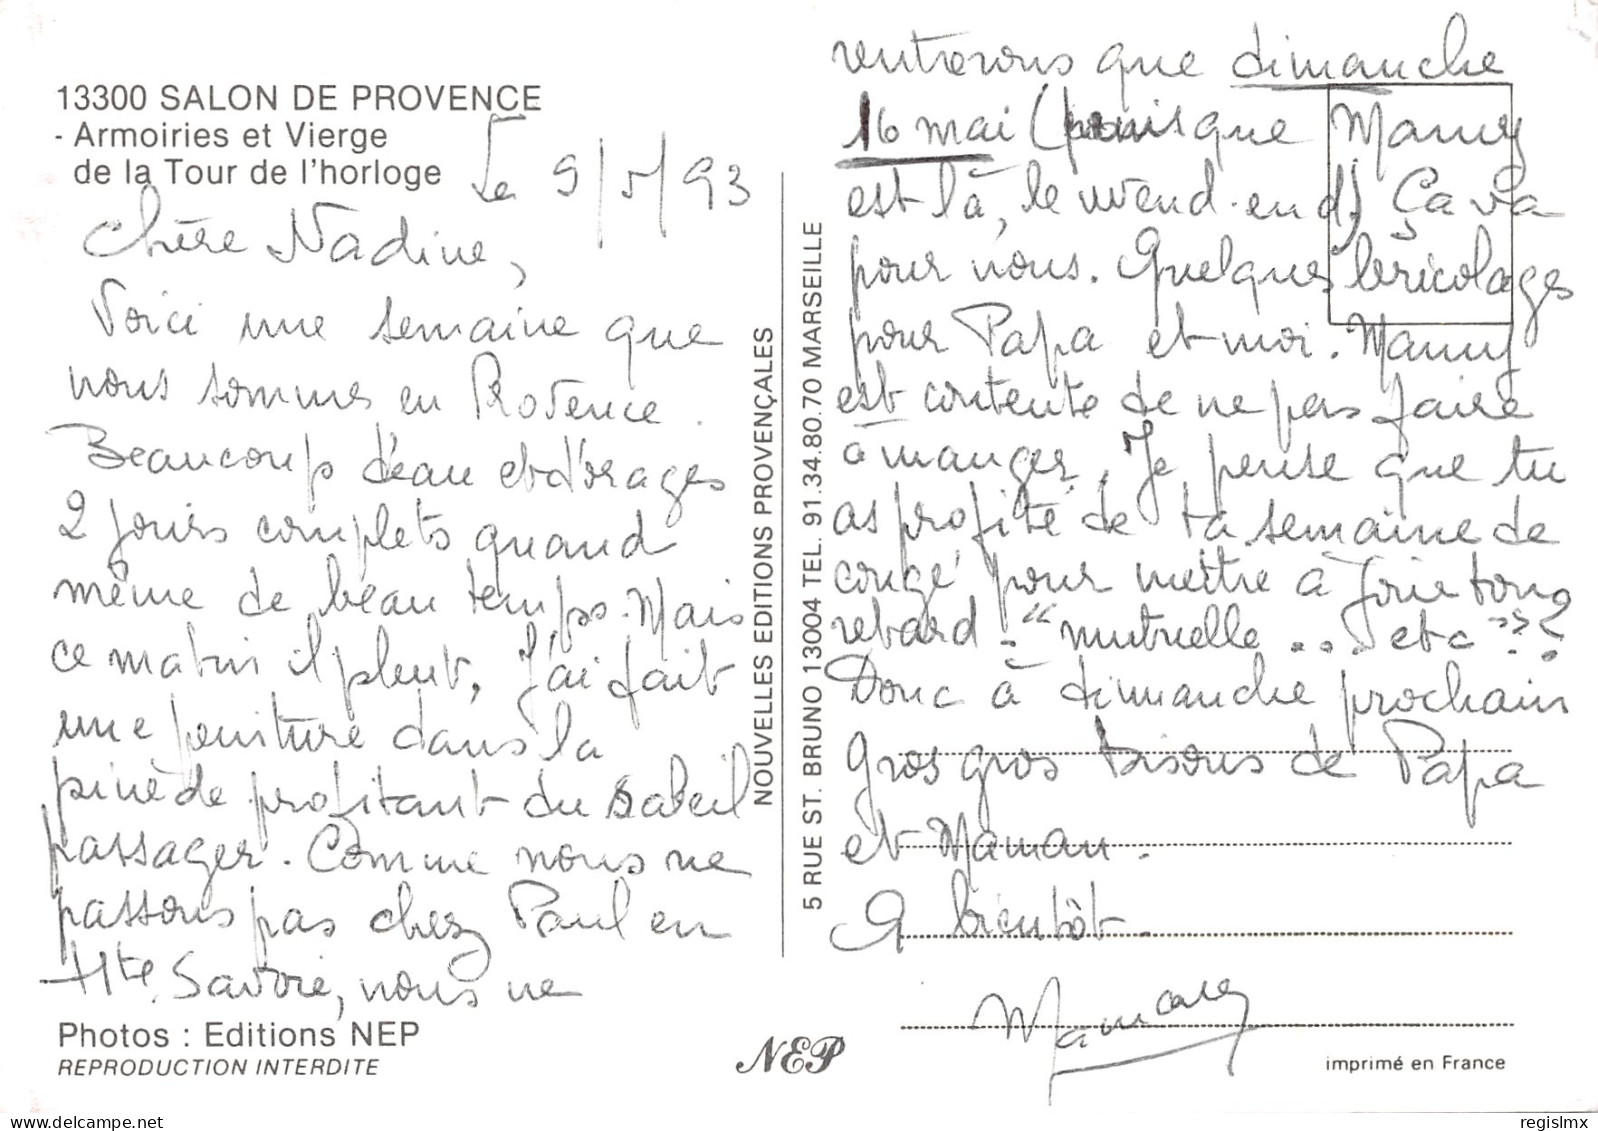 13300 SALON DE PROVENCE
- Armoiries et Vierge
de la Tour de l'horloge
Le 9/5/93
Chère Nadine,
Voici une semaine que
nous sommes en Provence.
Beaucoup d'eau et d'orages
2 jours complets quand
même de beau temps. Mais
ce matin il pleut, J'ai fait
une peinture dans la
pinède profitant du soleil
passager. Comme nous ne
passons pas chez Paul en
Hte Savoie, nous ne
Photos : Editions NEP
REPRODUCTION INTERDITE
NOUVELLES EDITIONS PROVENÇALES
5 RUE ST. BRUNO 13004 TEL. 91.34.80.70 MARSEILLE
rentrerons que dimanche
16 mai (puisque Mamy
est là, le weend-end) Ça va
pour nous. Quelques bricolages
pour Papa et moi. Mamy
est contente de ne pas faire
à manger. Je pense que tu
as profité de ta semaine de
congé pour mettre à jour ton
retard. "mutuelle... etc"??
Donc à dimanche prochain
Gros gros bisous de Papa
et Maman.
A bientôt.
NEP
imprimé en France
regislmx